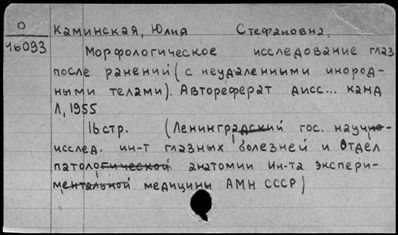 О
16093
Каминская, Юлия Стефановна.
Морфологическое исследование глаз
после ранений (с неудаленными инород-
ными телами). Автореферат дисс... канд
Л, 1955
16 стр. (Ленинградский гос. научно-
исслед. ин-т глазных болезней и Отдел
патологической анатомии Ин-та экспери-
ментальной медицины АМН СССР)